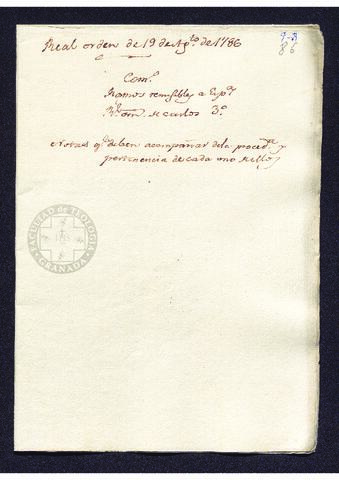 Real orden de 19 de Agto. de 1786
9-3
86
Com.
Ramos remisibles a Espa.
Rl. orn. de Carlos 3º
Notas q. deben acompañar dela proceda. y
pertenencia de cada uno de ellos
FACULTAD DE TEOLOGIA
GRANADA